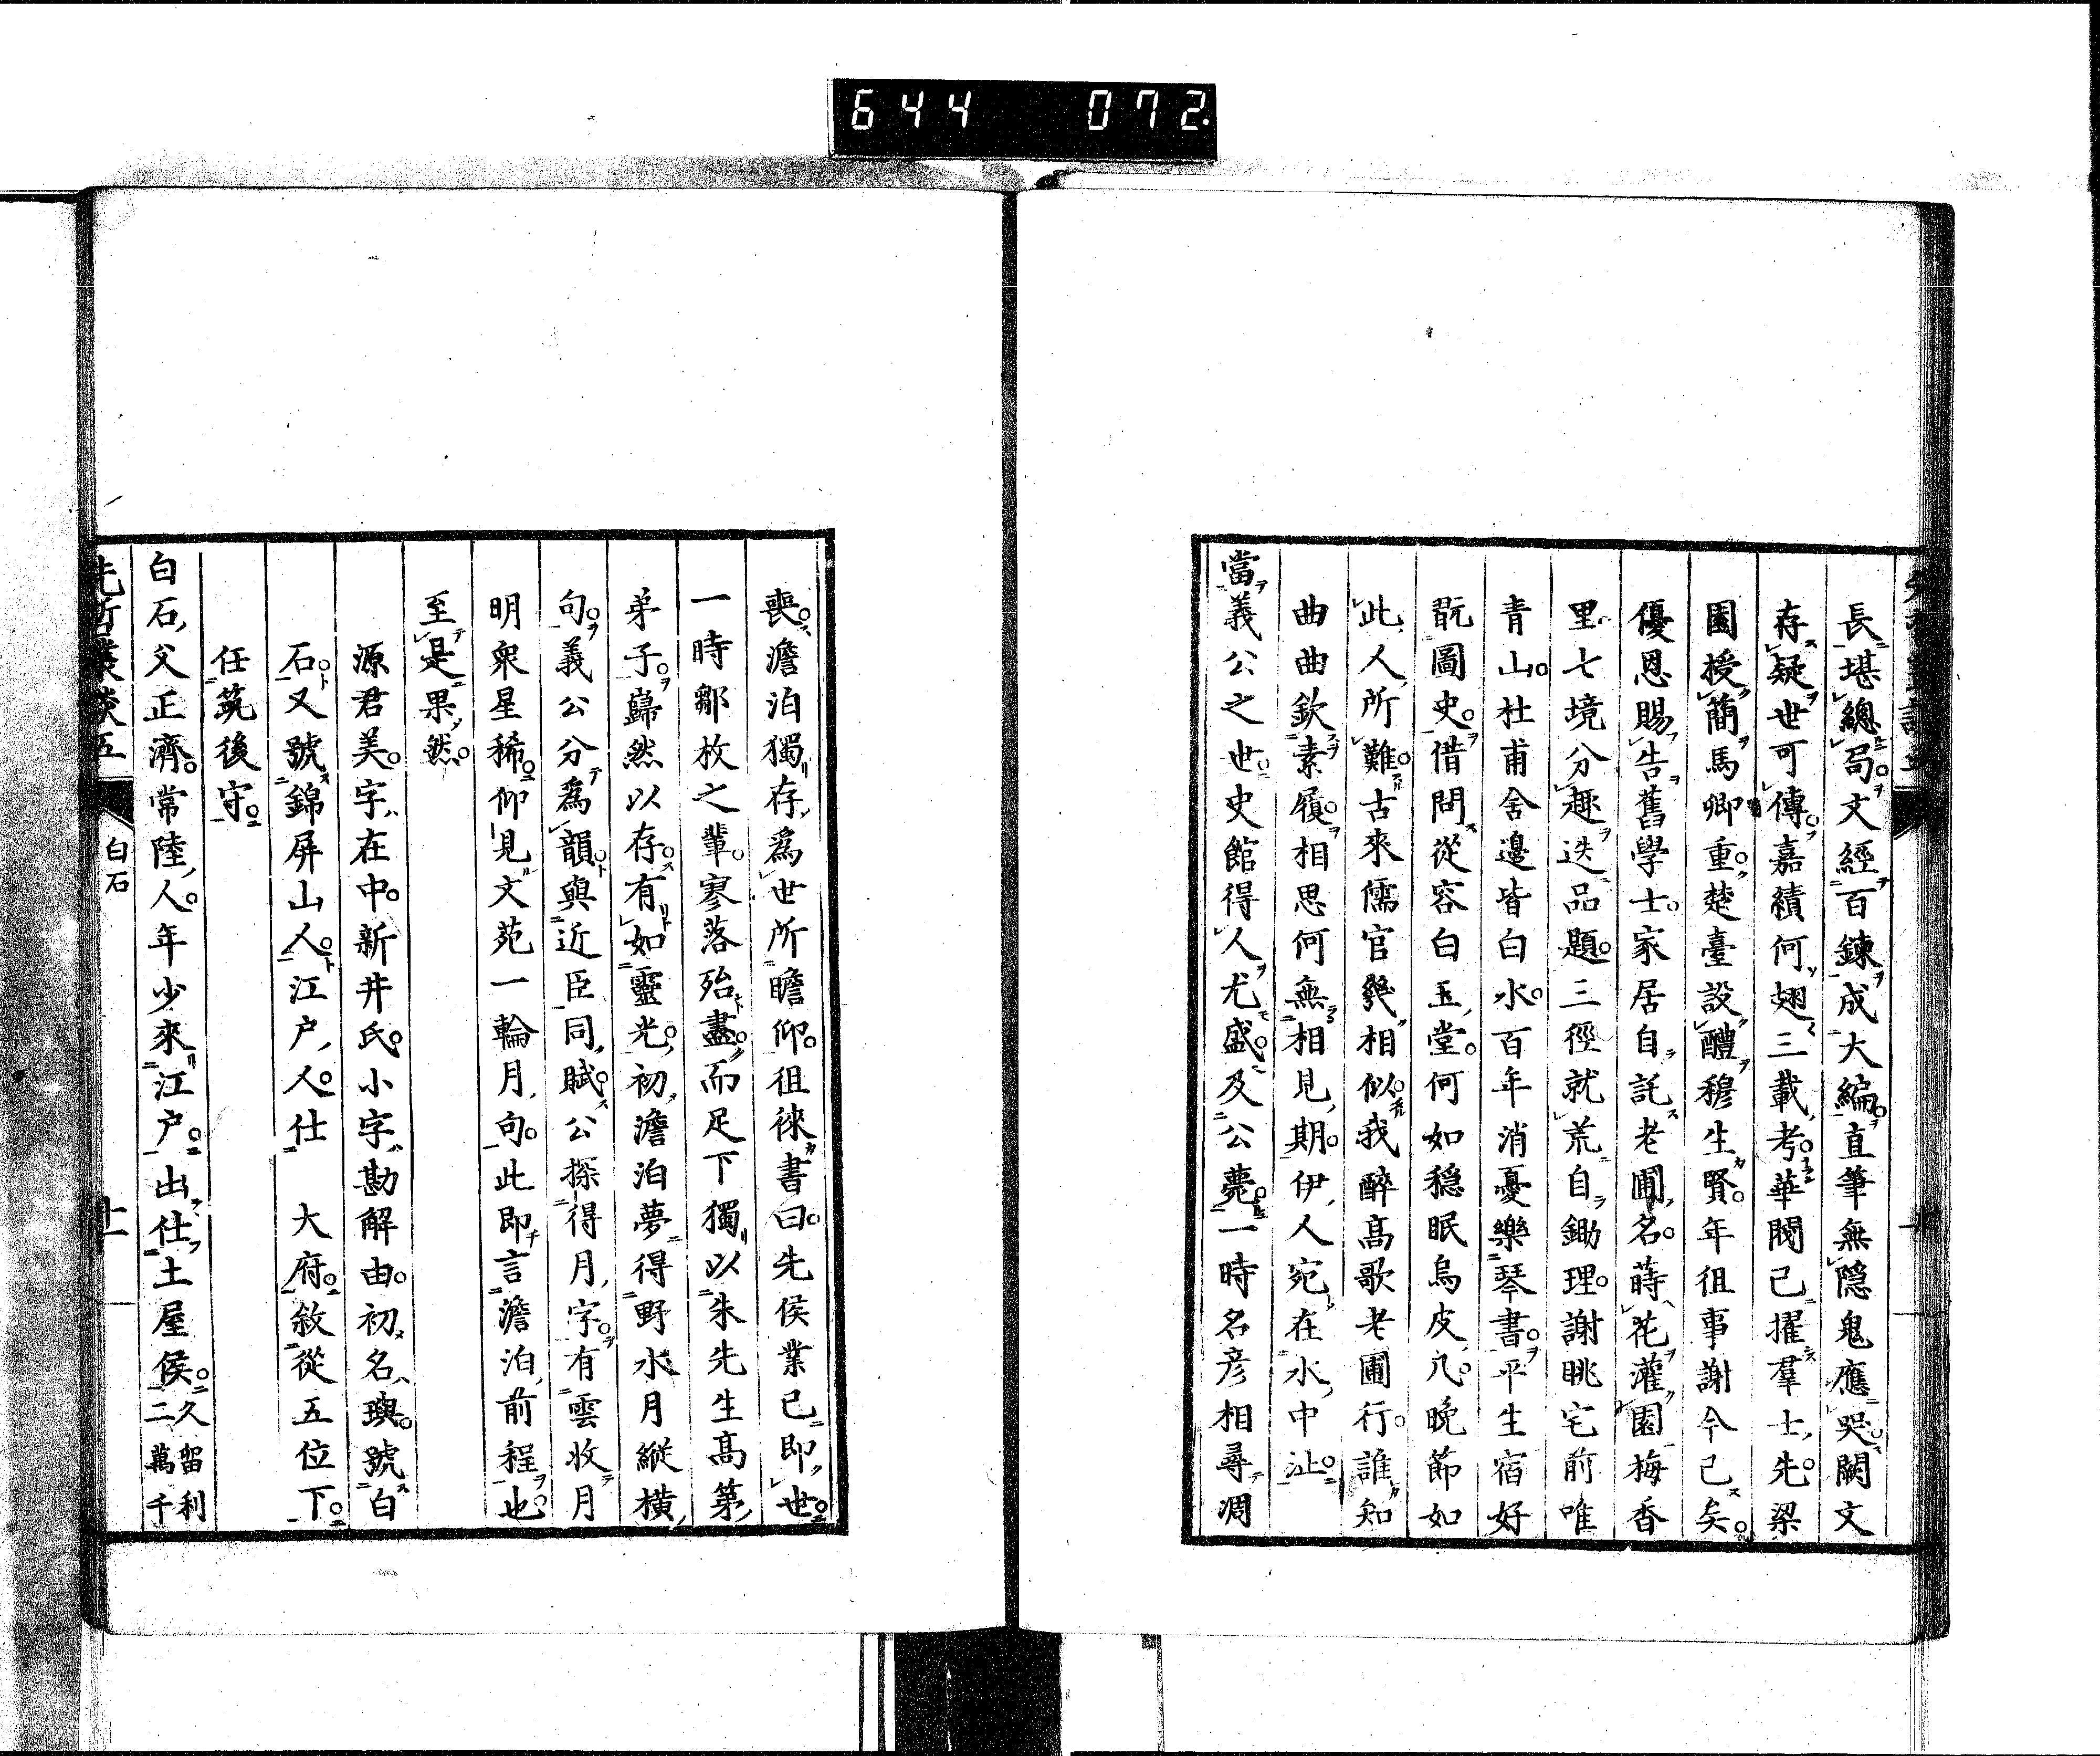 644 072
長堪總局文經百鍊成大編直筆無隱鬼應哭闕文
存疑世可傳嘉績何翅三載考華閥已擢羣士先梁
園授簡馬卿重楚臺設醴穆生賢年徂事謝今已矣
優恩賜告舊學士家居自託老圃名蒔花灌園梅香
里七境分趣迭品題三徑就荒自鋤理謝眺宅前唯
青山杜甫舍邊皆白水百年消憂樂琴書平生宿好
翫圖史借問從容白玉堂何如穏眠烏皮几晚節如
此人所難古來儒官幾相似我醉高歌老圃行誰知
曲曲欽素履相思何無相見期伊人宛在水中沚
當義公之世史館得人尤盛及公薨一時名彦相尋凋
喪澹泊獨存為世所瞻仰徂徠書曰先侯業已即世
一時鄒枚之輩寥落殆盡而足下獨以朱先生高第
弟子歸然以存有如靈光初澹泊夢得野水月縱橫
句義公分為韻與近臣同賦公探得月字有雲收月
明衆星稀仰見文苑一輪月句此即言澹泊前程也
至是果然
源君美字在中新井氏小字勘解由初名璵號白
石又號錦屏山人江戸人仕 大府敘從五位下
任筑後守
白石父正濟常陸人年少來江戸出仕土屋侯久留利二萬千
先哲叢談五
白石
十一